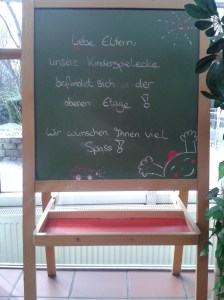 Liebe Eltern,
unsere Kinderspielecke
befindet sich in der
oberen Etage !
Wir wünschen Ihnen viel
Spass !